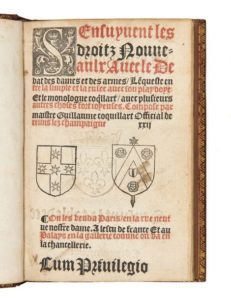 Sensuyuent les
droitz Nouue-
aulx Auec le De
bat des dames et des armes / Lēqueste en
tre la simple et la rusee auec son playdoye
Et le monologue coq̄llart / auec plusieurs
autres choses fort ioyeuses. Compose par
maistre Guillaume coquillart Official de
reims lez champaigne
xxij
On les bend a Paris / en la rue neuf
ue nostre dame. A lescu de france Et au
Palays en la gallerie comme on va en
la chancellerie.
Cum Priuilegio